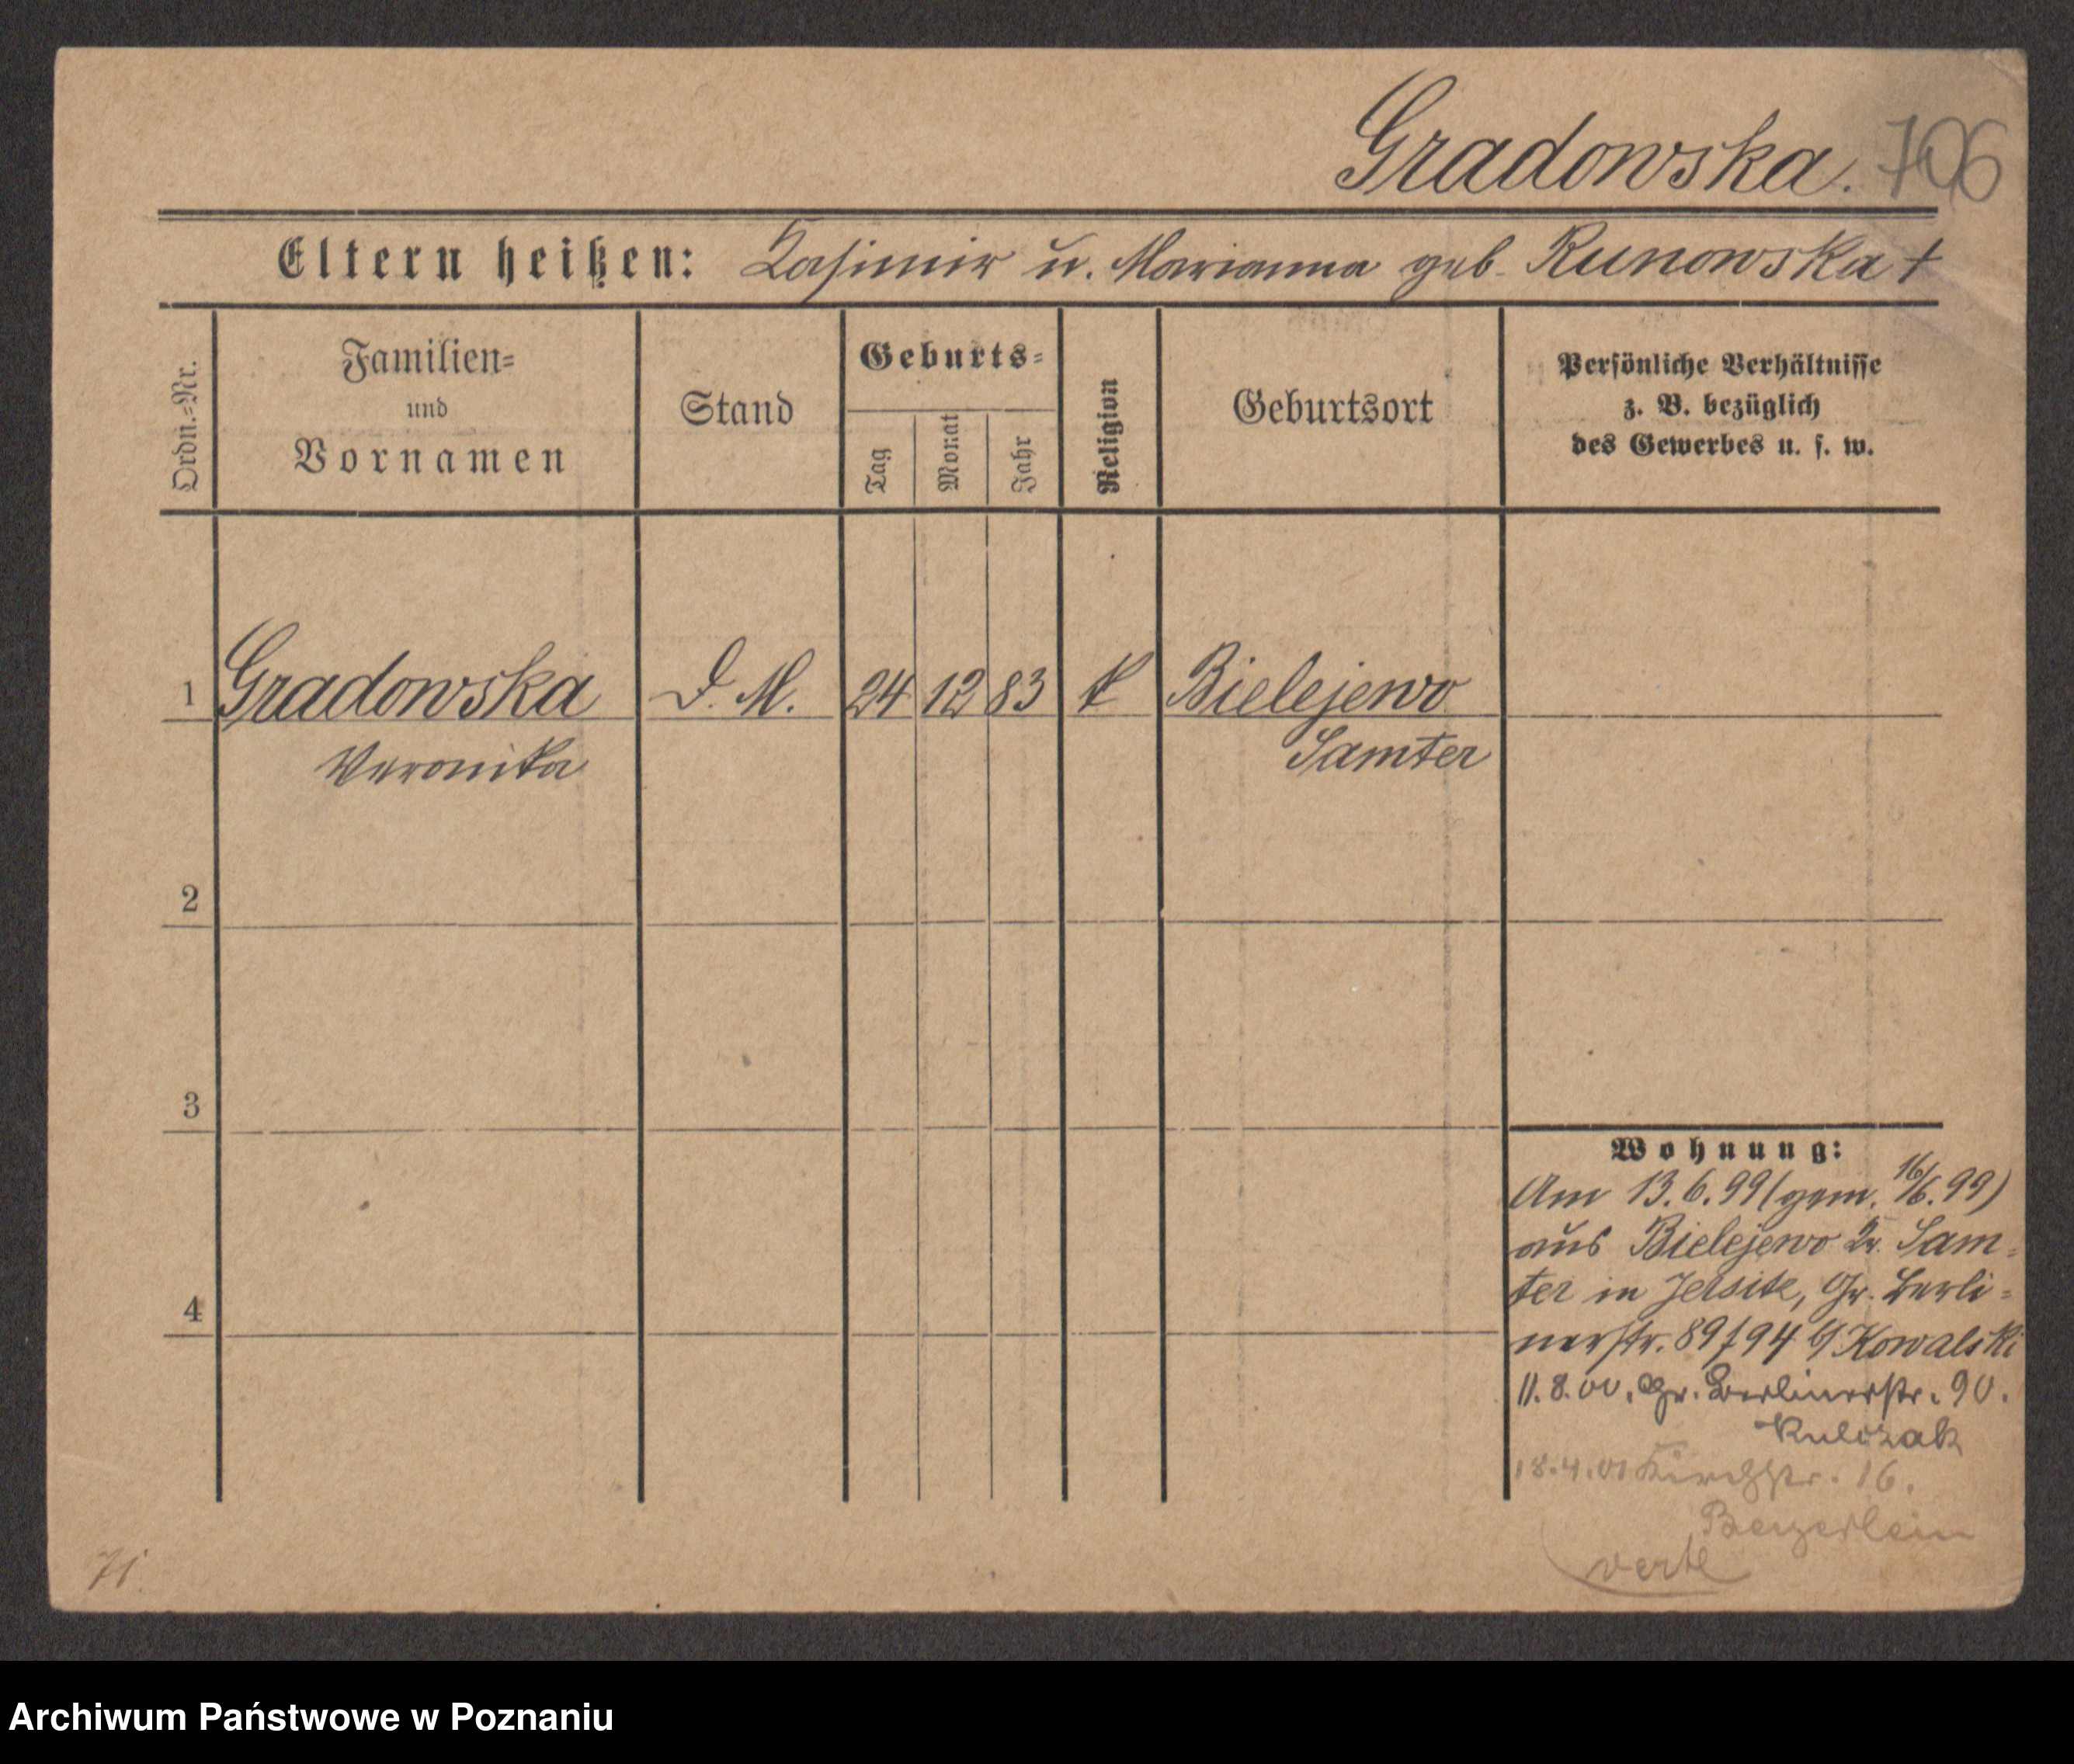 Gradowska. 706
Eltern heißen: Casimir u. Marianna geb. Runowska †
Ordn.=Nr.
Familien=
und
Vornamen
Stand
Geburts=
Tag
Monat
Jahr
Religion
Geburtsort
Persönliche Verhältnisse
z. B. bezüglich
des Gewerbes u. s. w.
1 Gradowska D. M. 24 12 83 K Bielejewo
Veronika Samter
2
3
4
Wohnung:
Am 13.6.99 (gem. 16/6.99)
aus Bielejewo Kr. Sam=
ter in Jersitz, Gr. Berli=
nerstr. 89/94 b/ Kowalski
11.8.00. Gr. Berlinerstr. 90.
Kulczak
18.4.01 Kirchstr. 16.
verte
71.
Archiwum Państwowe w Poznaniu